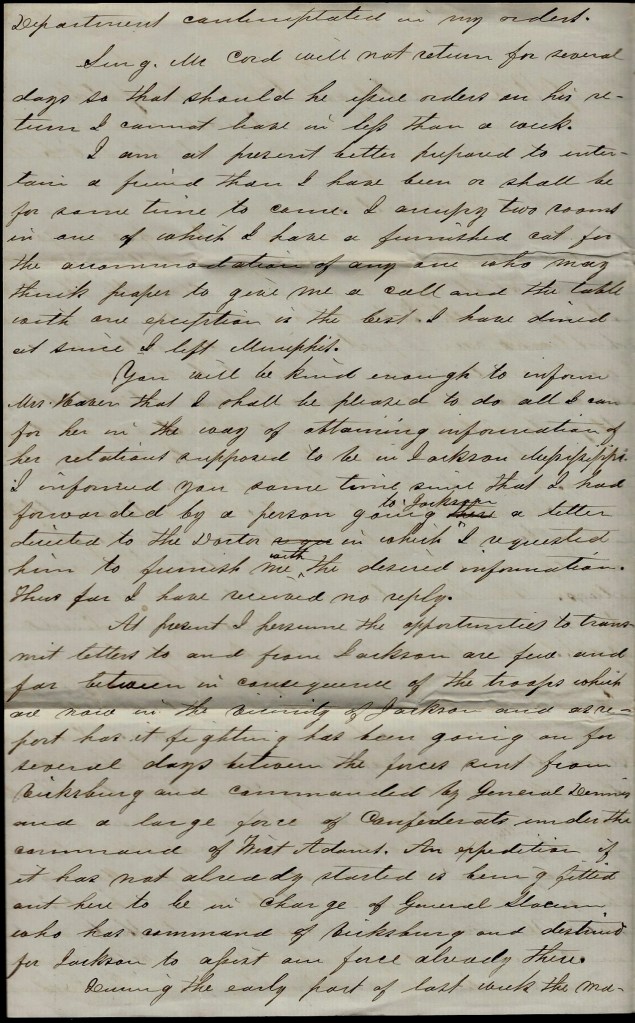 Department contemplated in my orders.
Surg. Mc Cord will not return for several
days so that should he issue orders on his re-
turn I cannot leave in less than a week.
I am at present better prepared to enter-
tain a friend than I have been or shall be
for some time to come. I occupy two rooms
in one of which I have a furnished cot for
the accommodation of any one who may
think proper to give me a call and the table
with one exception is the best I have dined
at since I left Memphis.
You will be kind enough to inform
Mrs. Haven that I shall be pleased to do all I can
for her in the way of attaining information of
her relations supposed to be in Jackson Mississippi.
I informed you some time since that I had
to Jackson
forwarded by a person going there a letter
directed to the Doctor in which I requested
with
him to furnish me the desired information.
Thus far I have received no reply.
At present I persume the opportunities to trans-
mit letters to and from Jackson are few and
far between in consequence of the troops which
are now in the vicinity of Jackson and as re-
port has it fighting has been going on for
several days between the forces sent from
Vicksburg and commanded by General Dennis
and a large force of Confederats under the
command of Wirt Adams. An expedition if
it has not already started is being fitted
out here to be in charge of General Slocum
who has command of Vicksburg and destined
for Jackson to assist our force already there.
During the early part of last week the ma-